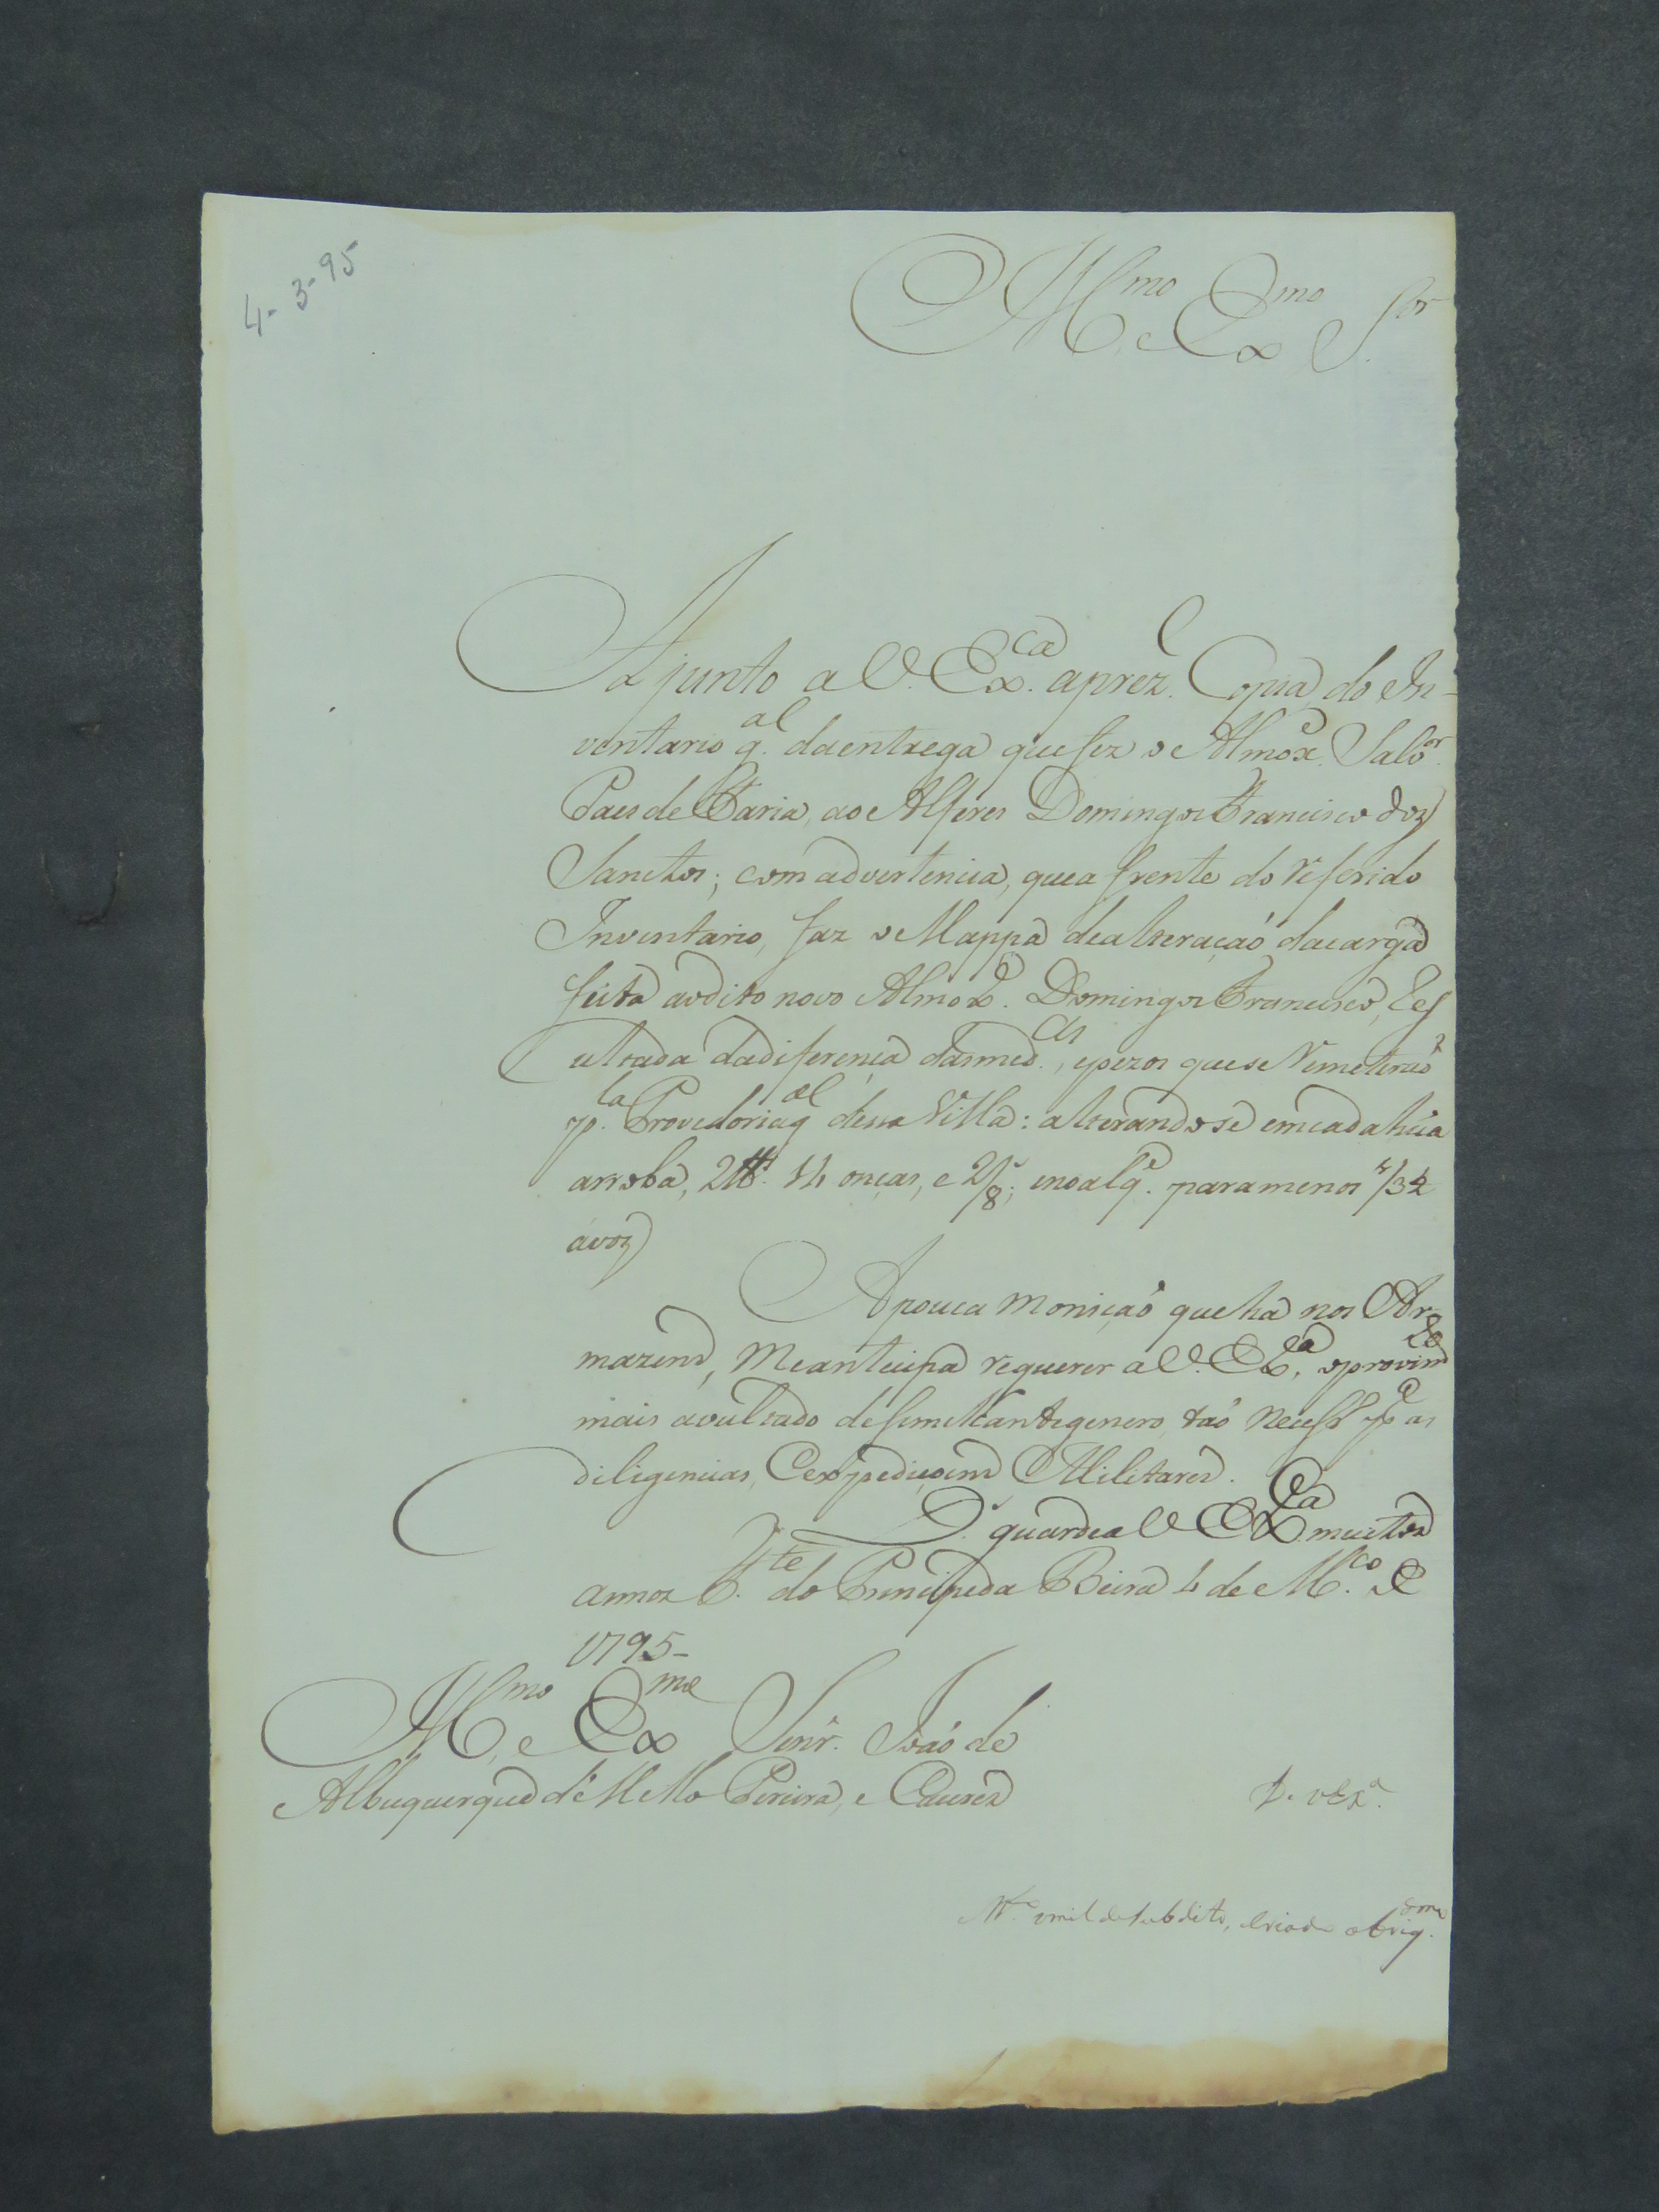 4-3-95
Ill.mo e Ex.mo S.or
Ajunto a V. Ex.ca aprez.e Copia do In-
ventario g.al daentrega quefez o Almox.e Salo.or
Paes de Faria, ao Alferes Domingos Francisco dos
Sanctos; com advertencia, quea frente do referido
Inventario, faz o Mappa dealteraçaó dacarga
feita aodito novo Almox.e Domingos Francisco, Res
ultada dadiferença dasmed.as, epezos quese Remeteraó
p.la Provedoria g.al dessa Villa: alterandose emcadahúa
arroba, 2 lb. 14 onças, e 2/8; enoalq.e paramenos 4/32
ávos
Apouca moniçaó que ha nos Ar-
mazens, Meanticipa requerer a V. Ex.ca, oprovim.to
mais avultado desemilhantegenero, taó necess.o p.a as
diligencias, Eexpediçoens Militares.
D.s guardea V Ex.ca muitos
annos F.te do Principeda Beira 4 de M.ço de
1795-
Ill.mo e Ex.mo Senr. Joaó de
Albuquerque de Mello Pereira, e Caceres
D. VEx.a
M.to umilde subdito, Criado obrig.dmo